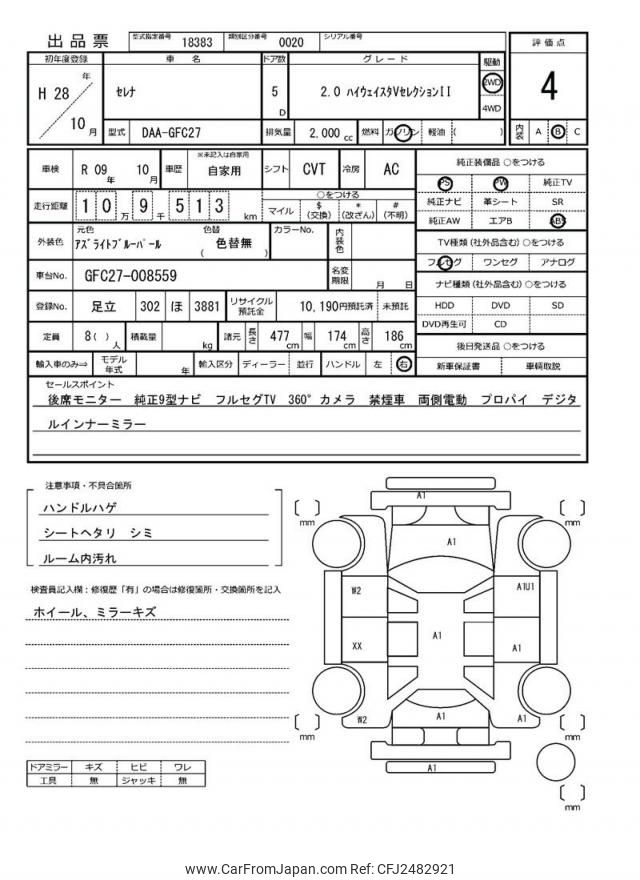 出品票 型式指定番号 18383 類別区分番号 0020 シリアル番号
評価点
4
初年度登録 車 名 ドア数 グレード 駆動
H 28 年 10 月 セレナ 5 D 2.0 ハイウェイスタVセレクションII 2WD 4WD
型式 DAA-GFC27 排気量 2,000 cc 燃料 ガソリン 軽油 ( )
内装 A B C
車検 R 09 年 10 月 車歴 ※未記入は自家用 自家用 シフト CVT 冷房 AC
走行距離 10 万 9 千 513 km ○をつける
マイル $ (交換) * (改ざん) # (不明)
外装色 元色 アズライトブルーパール 色替 ( 色替無 ) カラーNo. 内装色
車台No. GFC27-008559 名変期限 月 日
登録No. 足立 302 ほ 3881 リサイクル預託金 10,190円預託済 未預託
定員 8( ) 人 積載量 kg 諸元 長さ 477 cm 幅 174 cm 高さ 186 cm
輸入車のみ⇒ モデル年式 年 輸入区分 ディーラー 並行 ハンドル 左 右
純正装備品 ○をつける
PS PW 純正TV
純正ナビ 革シート SR
純正AW エアB ABS
TV種類 (社外品含む) ○をつける
フルセグ ワンセグ アナログ
ナビ種類 (社外品含む) ○をつける
HDD DVD SD
DVD再生可 CD
後日発送品 ○をつける
新車保証書 車輌取説
セールスポイント
後席モニター 純正9型ナビ フルセグTV 360°カメラ 禁煙車 両側電動 プロパイ デジタ
ルインナーミラー
注意事項・不具合箇所
ハンドルハゲ
シートヘタリ シミ
ルーム内汚れ
検査員記入欄：修復歴「有」の場合は修復箇所・交換箇所を記入
ホイール、ミラーキズ
ドアミラー キズ ヒビ ワレ
工具 無 ジャッキ 無
A1
mm mm
A1
W2 A1U1
A1
XX A1
W2 A1 A1
mm mm
A1
mm
www.CarFromJapan.com Ref: CFJ2482921